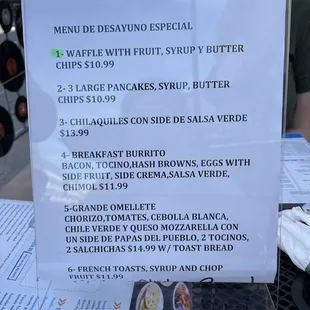 MENU DE DESAYUNO ESPECIAL
1- WAFFLE WITH FRUIT, SYRUP Y BUTTER
CHIPS $10.99
2- 3 LARGE PANCAKES, SYRUP, BUTTER
CHIPS $10.99
3- CHILAQUILES CON SIDE DE SALSA VERDE
$13.99
4- BREAKFAST BURRITO
BACON, TOCINO,HASH BROWNS, EGGS WITH
SIDE FRUIT, SIDE CREMA,SALSA VERDE,
CHIMOL $11.99
5-GRANDE OMELLETE
CHORIZO,TOMATES, CEBOLLA BLANCA,
CHILE VERDE Y QUESO MOZZARELLA CON
UN SIDE DE PAPAS DEL PUEBLO, 2 TOCINOS,
2 SALCHICHAS $14.99 W/ TOAST BREAD
6- FRENCH TOASTS, SYRUP AND CHOP
FRUIT $11.99